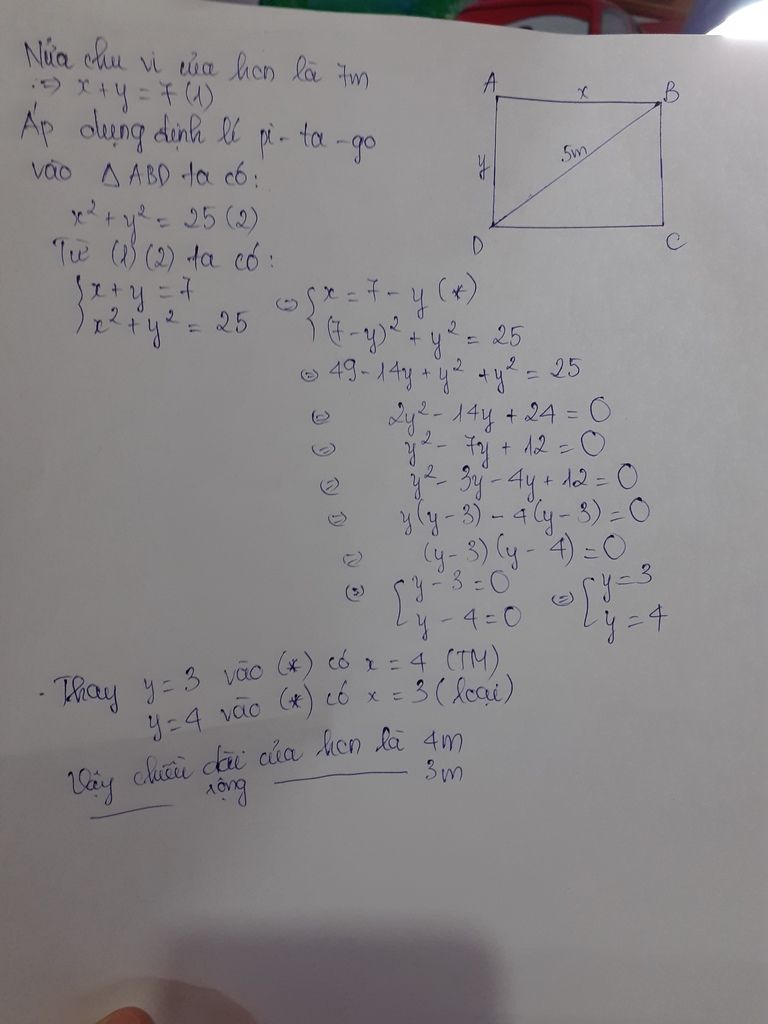 Nửa chu vi của hcn là 7m
=> x+y = 7 (1)
Áp dụng định lí pi-ta-go
vào △ ABD ta có:
x² + y² = 25 (2)
Từ (1) (2) ta có:
{ x+y = 7
x² + y² = 25
⇔ { x = 7 - y (*)
(7-y)² + y² = 25
⇔ 49 - 14y + y² + y² = 25
⇔ 2y² - 14y + 24 = 0
⇔ y² - 7y + 12 = 0
⇔ y² - 3y - 4y + 12 = 0
⇔ y(y-3) - 4(y-3) = 0
⇔ (y-3)(y-4) = 0
⇔ [ y - 3 = 0 ⇔ [ y = 3
y - 4 = 0 y = 4
. Thay y = 3 vào (*) có x = 4 (TM)
y = 4 vào (*) có x = 3 (loại)
Vậy chiều dài của hcn là 4m
rộng 3m
A x B
y 5m
D C